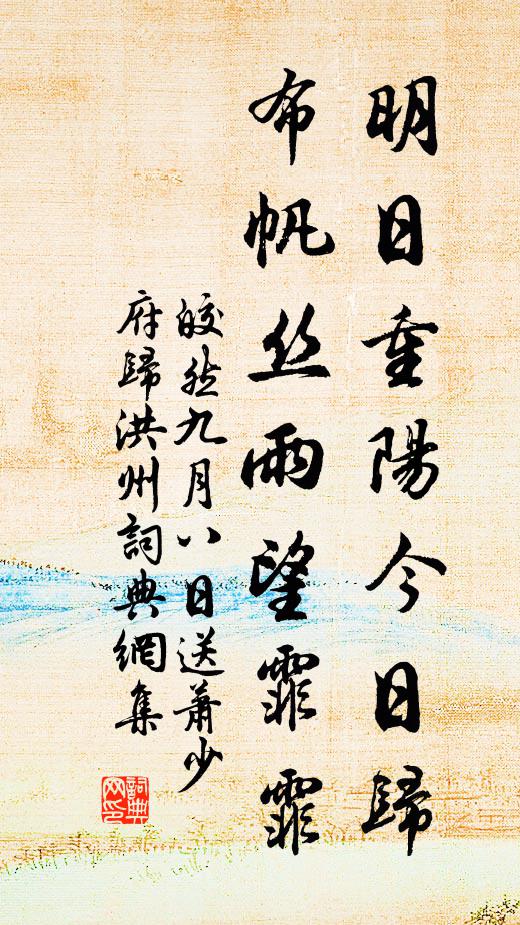 明日重陽今日歸
布帆丝雨望霏霏
皎然九月八日送蕭少
府歸洪州詞典網集
詞典
网印